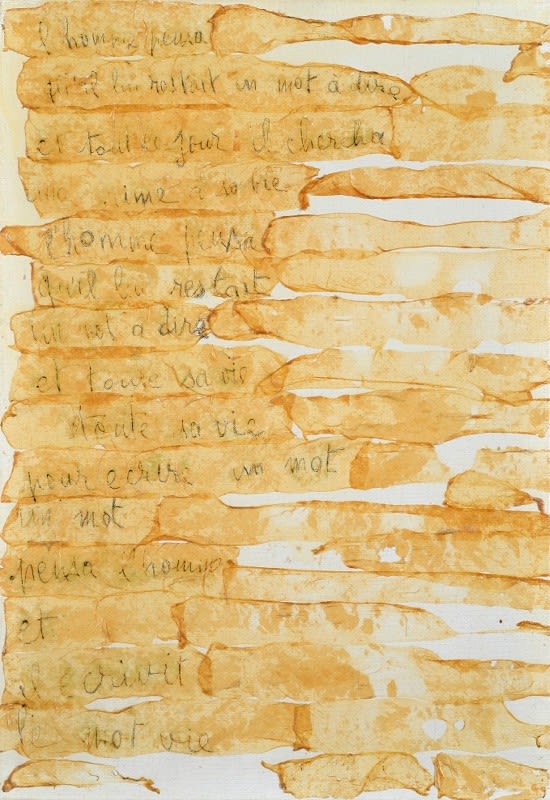 l'homme pensa
qu'il lui restait un mot à dire
et tout le jour il chercha
ime
l'homme pensa
qu'il lui restait
un mot à dire
et toute sa vie
toute sa vie
pour ecrire un mot
un mot
pensa l'homme
et
il écrivit
le mot vie